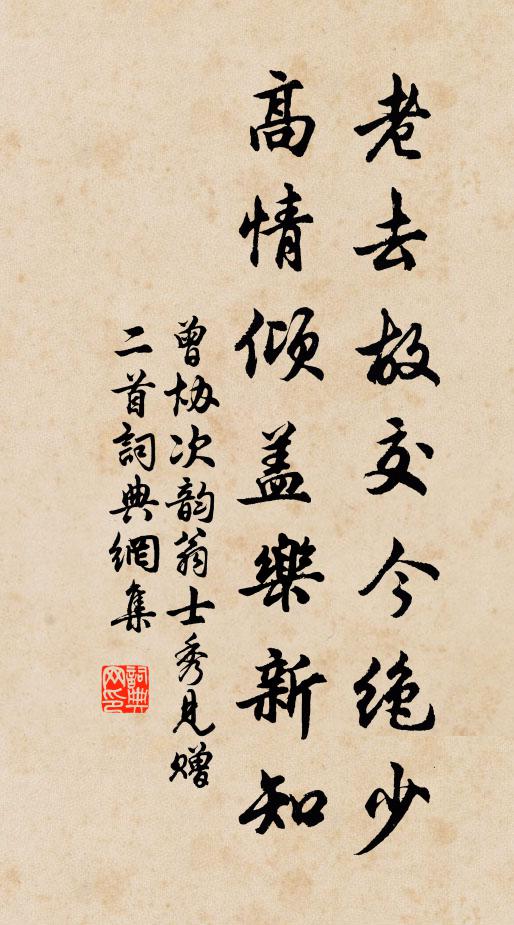 老去故交今绝少
高情倾盖樂新知
曾协次韵翁士秀見赠
二首詞典網集
詞典
网印